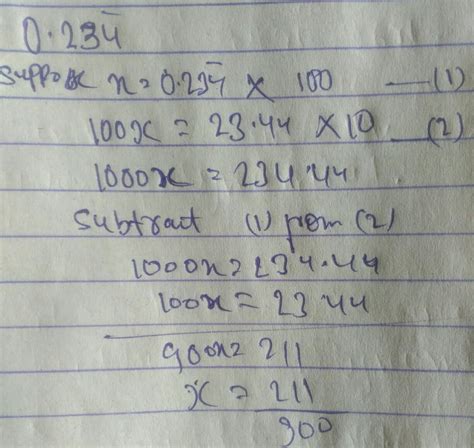 0.234̅
Suppose x = 0.234̅ × 100 — (1)
100x = 23.44 × 10 — (2)
1000x = 234.44
Subtract (1) from (2)
1000x = 234.44
100x = 23 44
900x = 211
x = 211
900